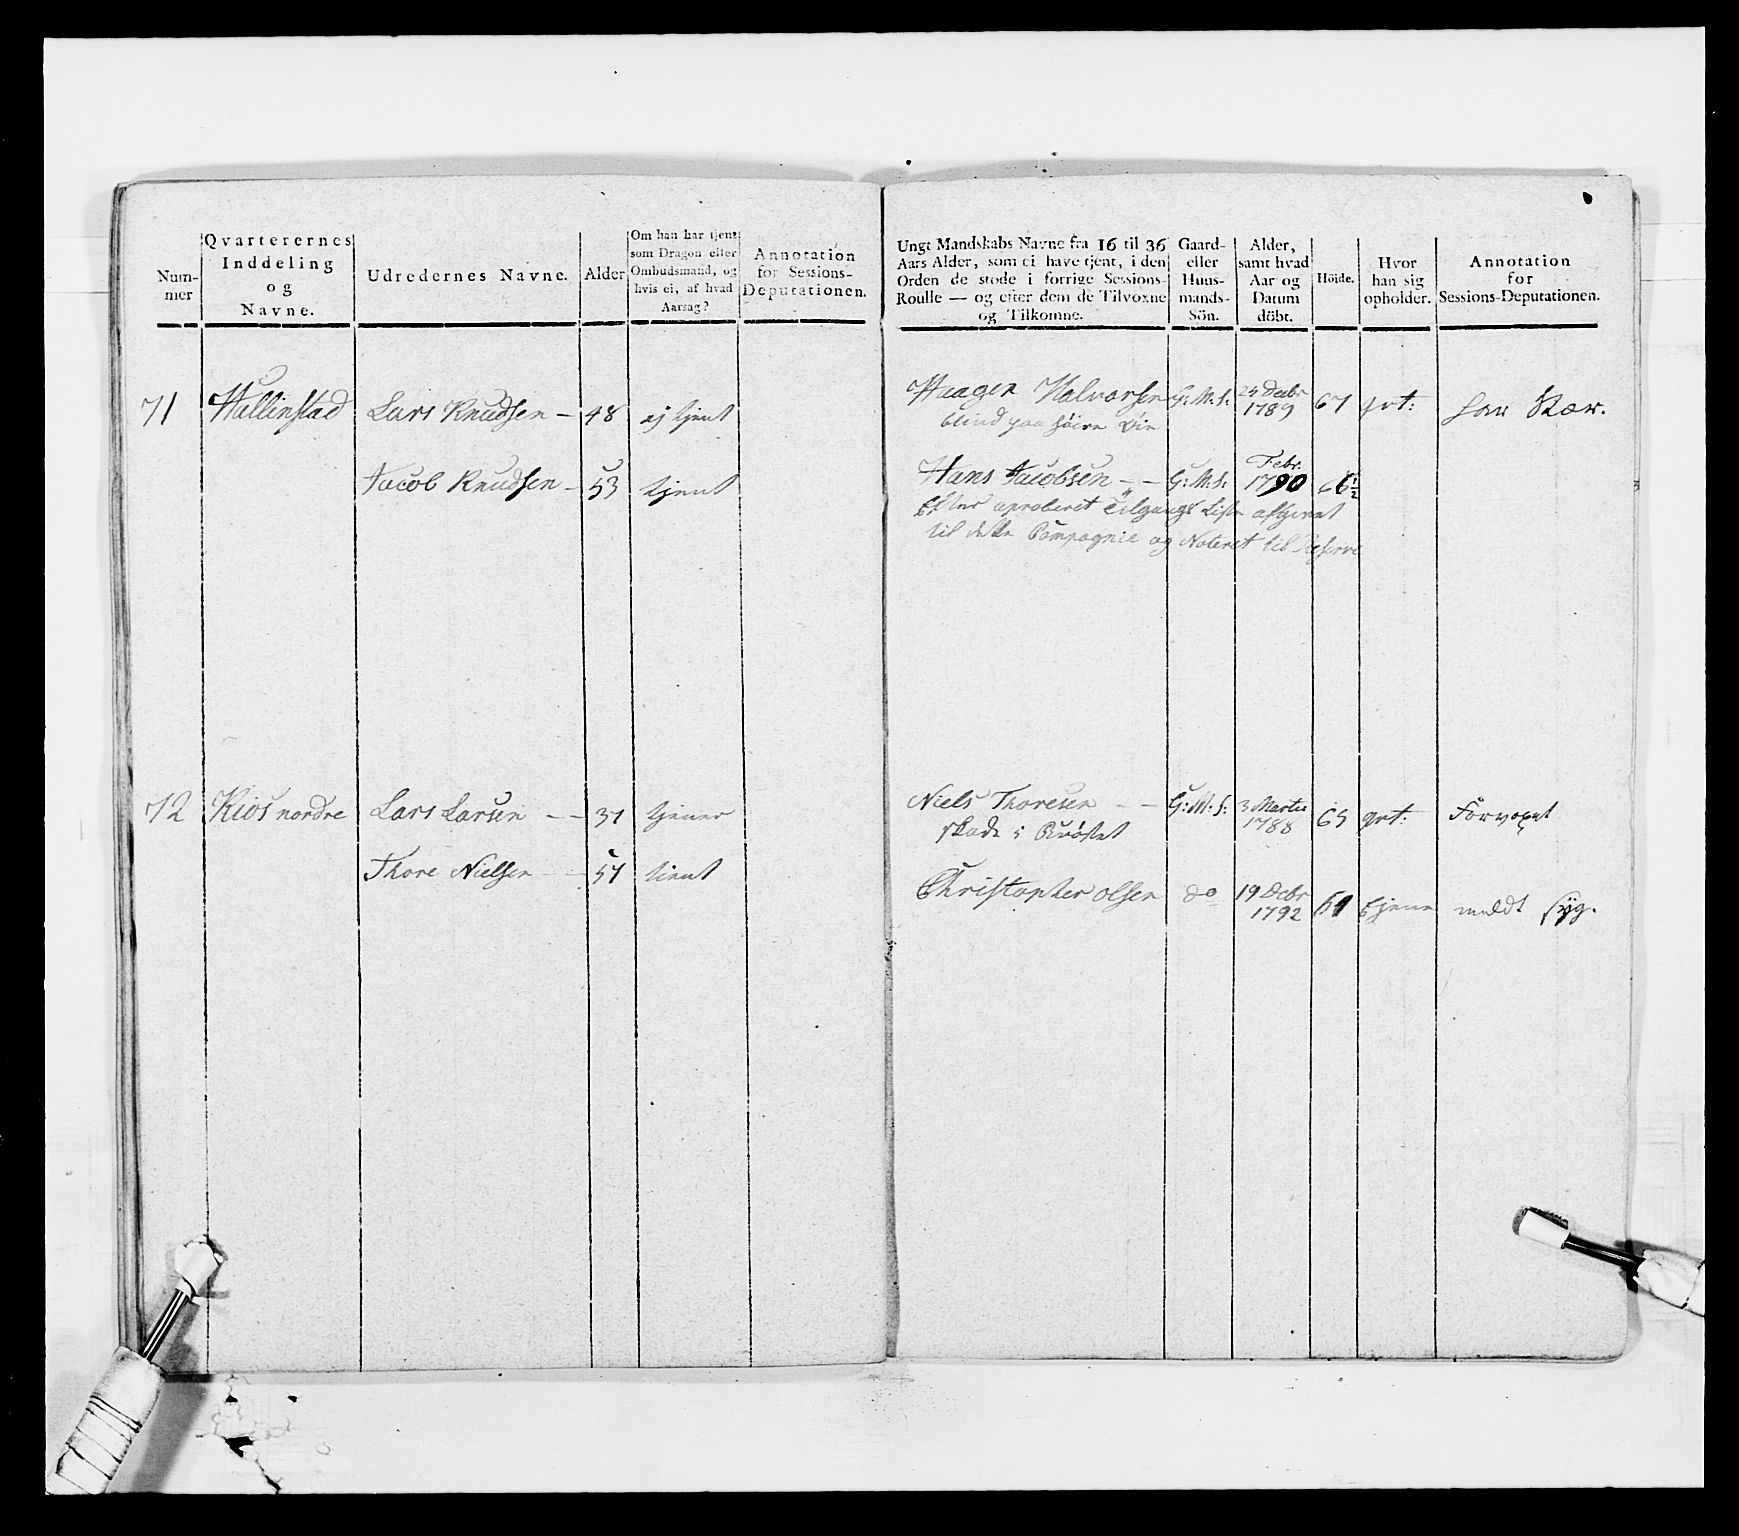 Num-
mer
Qvarterernes
Inddeling
og
Navne.
Udredernes Navne.
Alder
Om han har tjent
som Dragon eller
Ombudsmand, og
hvis ei, af hvad
Aarsag?
Annotation
for Sessions-
Deputationen.
Ungt Mandskabs Navne fra 16 til 36
Aars Alder, som ei have tjent, i den
Orden de stode i forrige Sessions-
Roulle — og efter dem de Tilvoxne
og Tilkomne.
Gaard-
eller
Huus-
mands-
Sön.
Alder,
samt hvad
Aar og
Datum
döbt.
Höide.
Hvor
han sig
opholder.
Annotation
for
Sessions-Deputationen.
71 Hallinstad Lars Knudsen — 48 ej tjent
Jacob Knudsen - 53 tjent
Haagen Halvorsen G: M: S: 24 Decbr 1789 67
blind paa høire Øie
Hans Jacobsen - - G: M: S: Febr. 1790 66 1/2
Efter aproberet Tilgangs Liste afgivet
til dette Compagnie og Noteret til Reserve
72 Kios nordre Lars Larsen - - 37 tjener
Thore Nielsen - - 57 tient
Niels Thoresen - - G: M: S: 3 Martii 1788 65 Forvoxet
skade i Brøstet
Christopher Olsen do 19 Decbr 1792 61 hjeme meldt syg.